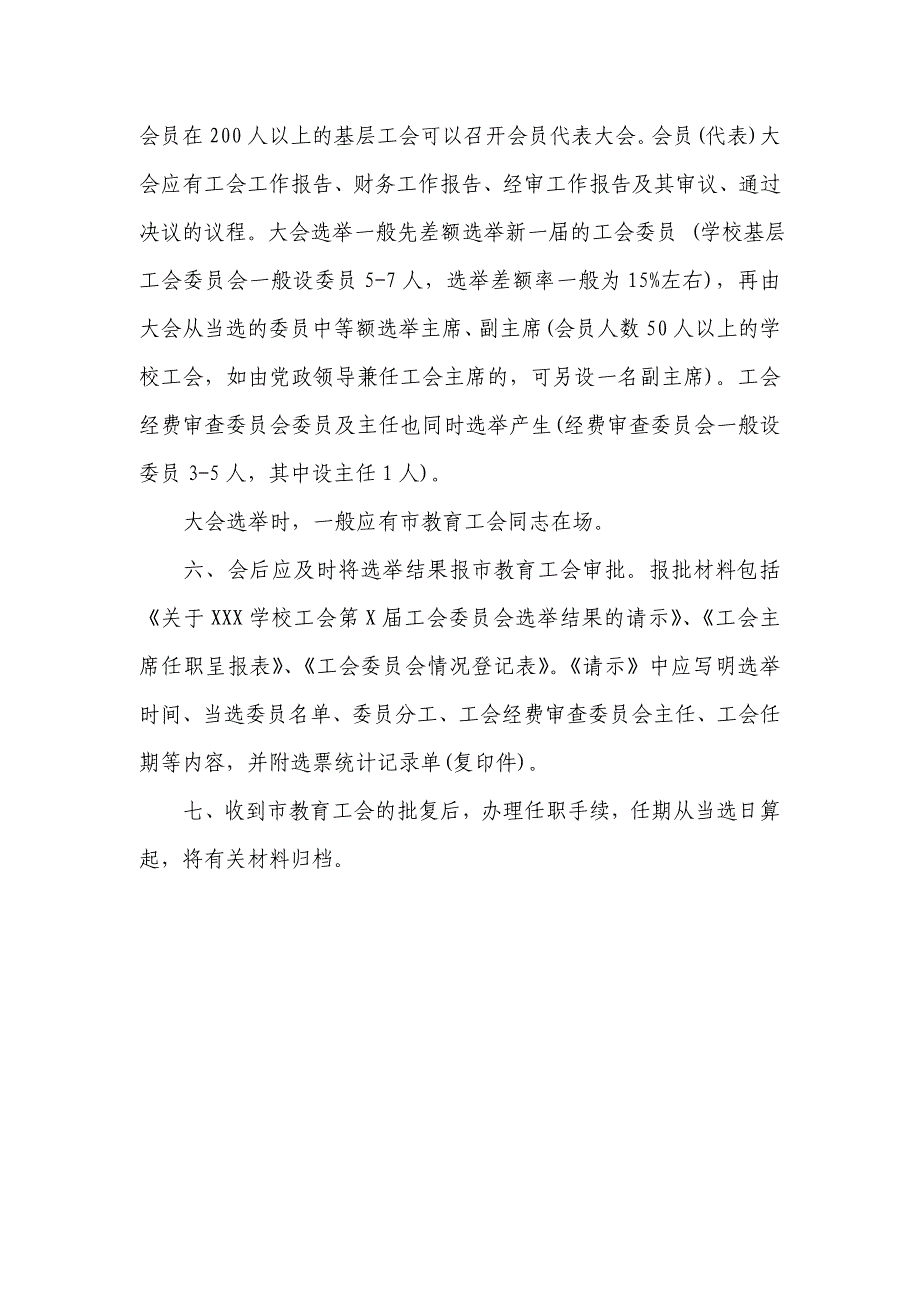 会员在 200 人以上的基层工会可以召开会员代表大会。会员(代表)大
会应有工会工作报告、财务工作报告、经审工作报告及其审议、通过
决议的议程。大会选举一般先差额选举新一届的工会委员 (学校基层
工会委员会一般设委员 5-7 人，选举差额率一般为 15%左右)，再由
大会从当选的委员中等额选举主席、副主席(会员人数 50 人以上的学
校工会，如由党政领导兼任工会主席的，可另设一名副主席)。工会
经费审查委员会委员及主任也同时选举产生(经费审查委员会一般设
委员 3-5 人，其中设主任 1 人)。
大会选举时，一般应有市教育工会同志在场。
六、会后应及时将选举结果报市教育工会审批。报批材料包括
《关于 XXX 学校工会第 X 届工会委员会选举结果的请示》、《工会主
席任职呈报表》、《工会委员会情况登记表》。《请示》中应写明选举
时间、当选委员名单、委员分工、工会经费审查委员会主任、工会任
期等内容，并附选票统计记录单(复印件)。
七、收到市教育工会的批复后，办理任职手续，任期从当选日算
起，将有关材料归档。